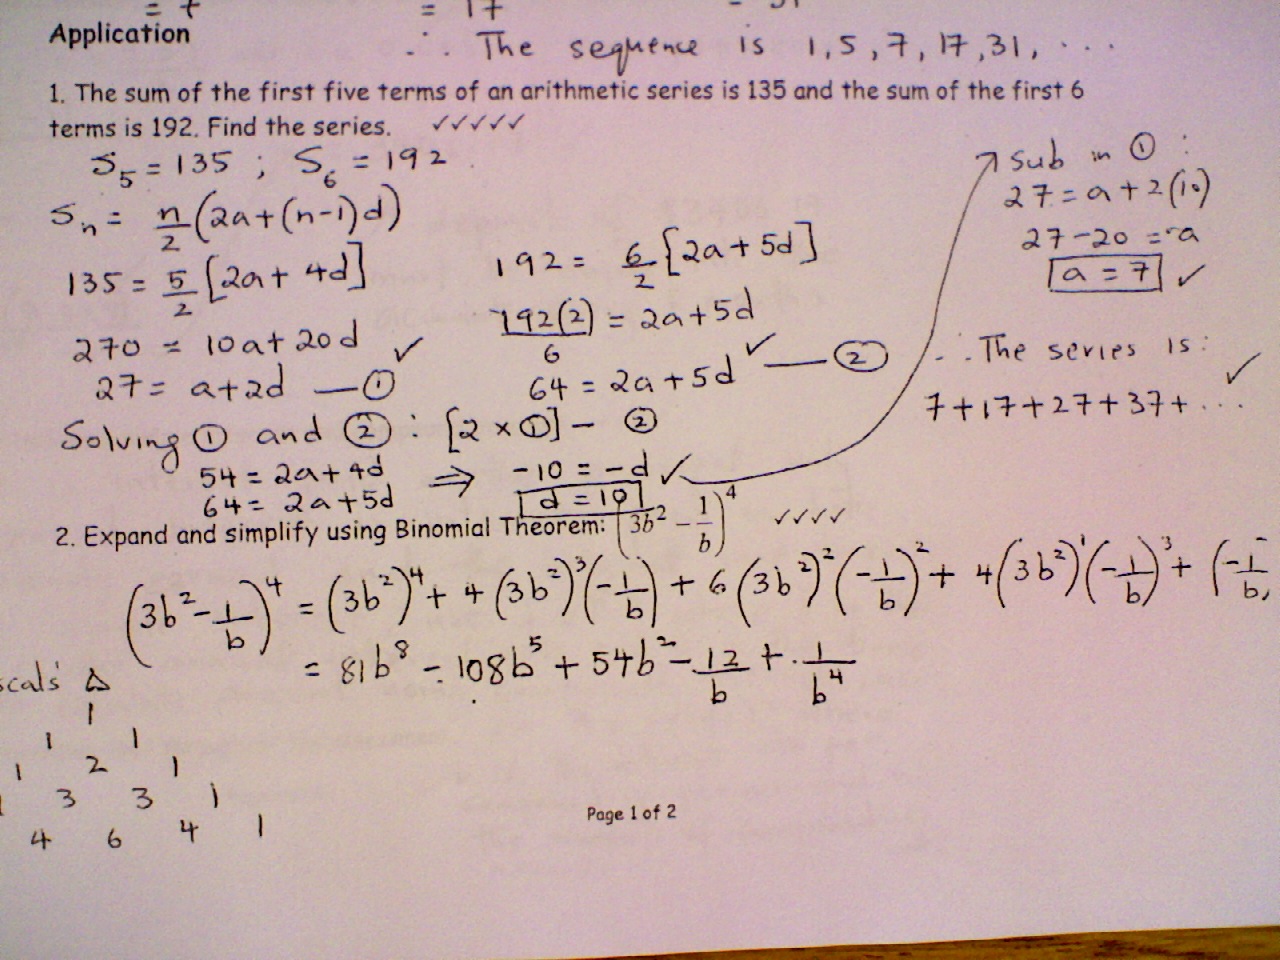 = 17
Application
∴ The sequence is 1, 5, 7, 17, 31, ...
1. The sum of the first five terms of an arithmetic series is 135 and the sum of the first 6
terms is 192. Find the series. ✓✓✓✓✓
S₅ = 135 ; S₆ = 192
Sₙ = n/2 (2a + (n-1)d)
135 = 5/2 [2a + 4d]
270 = 10a + 20d ✓
27 = a + 2d — ①
192 = 6/2 [2a + 5d]
192(2)/6 = 2a + 5d
64 = 2a + 5d ✓ — ②
Solving ① and ② : [2 × ①] - ②
54 = 2a + 4d ⇒ -10 = -d ✓
64 = 2a + 5d d = 10
Sub in ① :
27 = a + 2(10)
27 - 20 = a
a = 7 ✓
∴ The series is :
7 + 17 + 27 + 37 + ... ✓
2. Expand and simplify using Binomial Theorem: (3b² - 1/b)⁴ ✓✓✓✓
(3b² - 1/b)⁴ = (3b²)⁴ + 4(3b²)³(-1/b) + 6(3b²)²(-1/b)² + 4(3b²)¹(-1/b)³ + (-1/b
= 81b⁸ - 108b⁵ + 54b² - 12/b + 1/b⁴
scal's Δ
1
1 1
1 2 1
3 3 1
4 6 4 1
Page 1 of 2